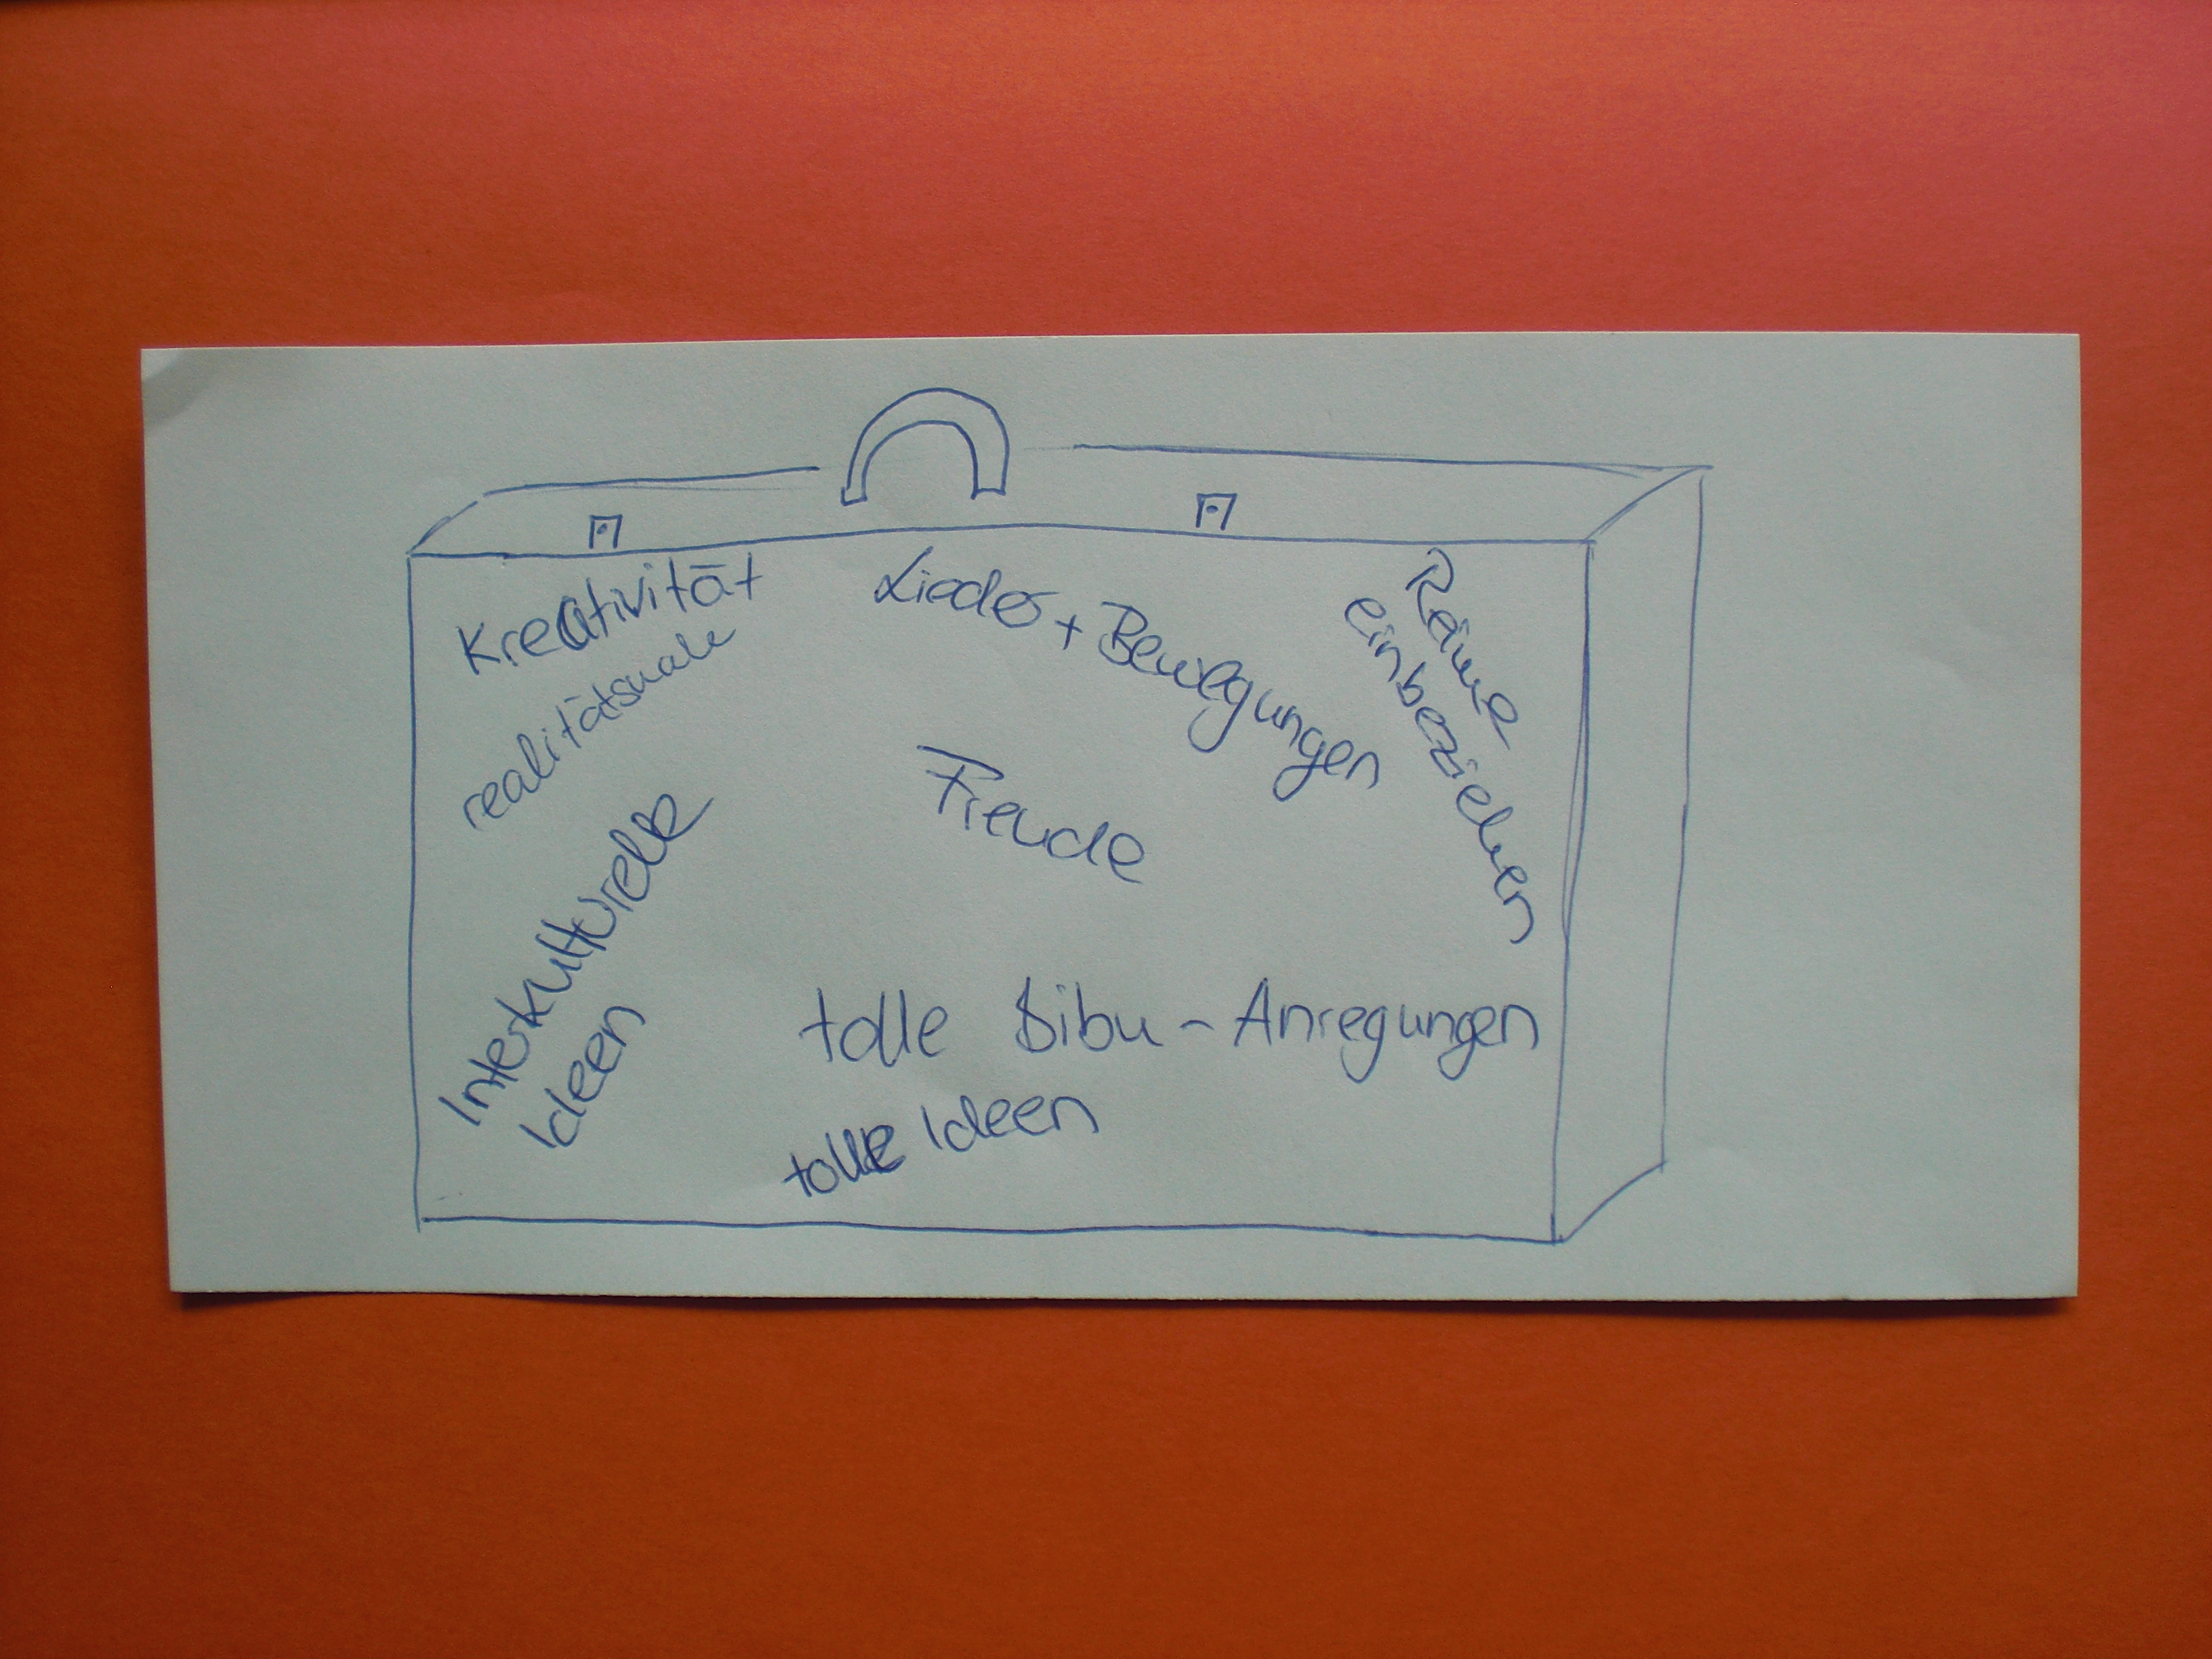 Kreativität
realitätsnahe
Lieder + Bewegungen
Räume
einbeziehen
Freude
Interkulturelle
Ideen
tolle Bibu - Anregungen
tolle Ideen